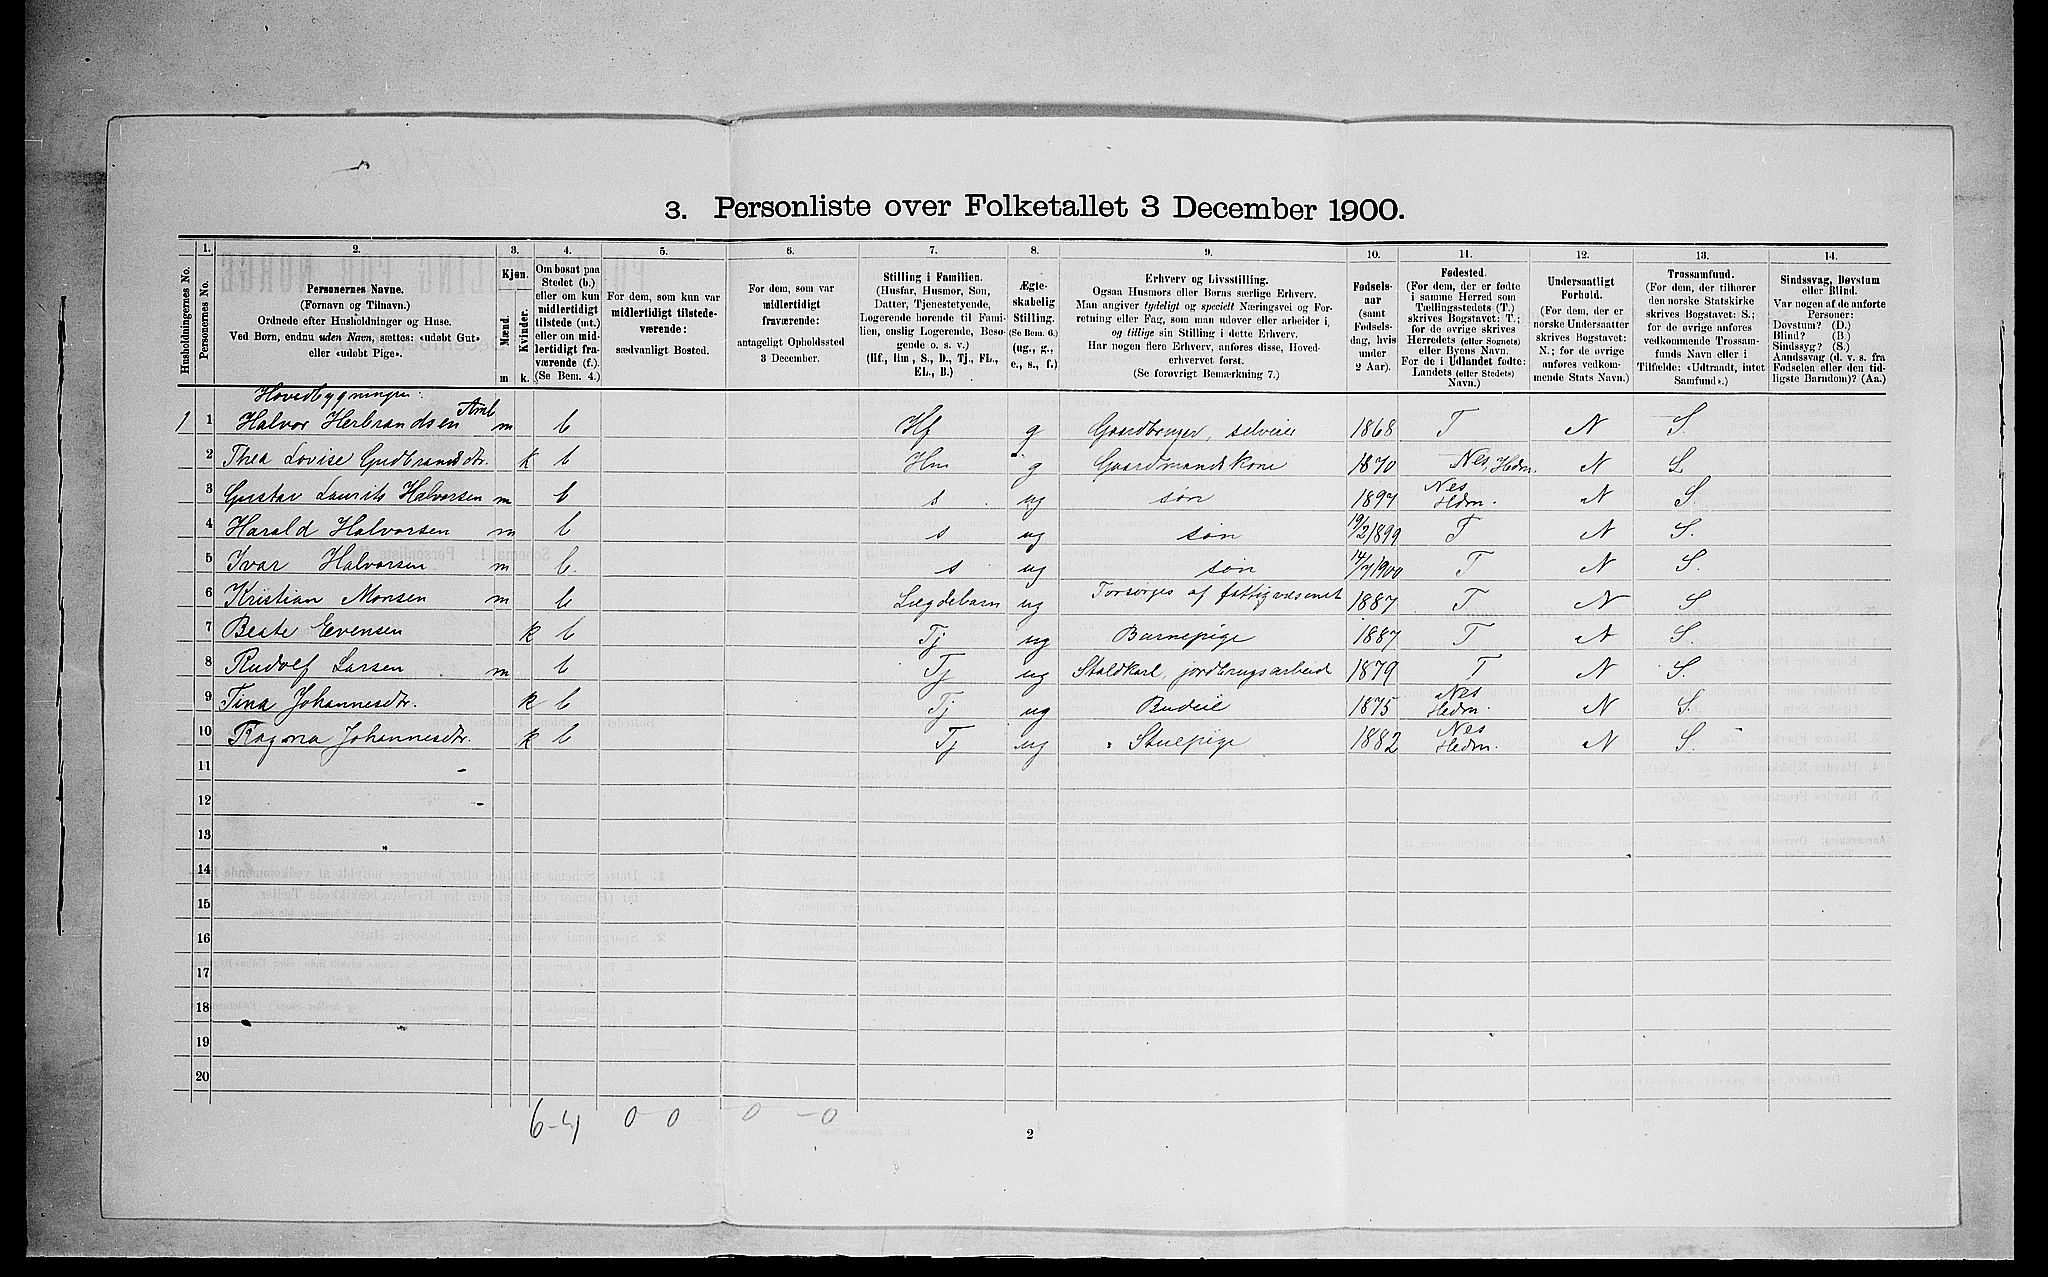 3. Personliste over Folketallet 3 December 1900.
Husholdningernes No.
1. Personernes No.
2. Personernes Navne. (Fornavn og Tilnavn.) Ordnede efter Husholdninger og Huse. Ved Børn, endnu uden Navn, sættes: «udøbt Gut» eller «udøbt Pige».
3. Kjøn. Mænd. m Kvinder. k.
4. Om bosat paa Stedet (b.) eller om kun midlertidigt tilstede (mt.) eller om midlertidigt fraværende (f.). (Se Bem. 4.)
5. For dem, som kun var midlertidigt tilstedeværende: sædvanligt Bosted.
6. For dem, som var midlertidigt fraværende: antageligt Opholdssted 3 December.
7. Stilling i Familien. (Husfar, Husmor, Søn, Datter, Tjenestetyende, Logerende hørende til Familien, enslig Logerende, Besøgende o. s. v.) (Hf., Hm., S., D., Tj., FL., EL., B.)
8. Ægteskabelig Stilling. (Se Bem. 6.) (ug., g., e., s., f.)
9. Erhverv og Livsstilling. Ogsaa Husmors eller Børns særlige Erhverv. Man angiver tydeligt og specielt Næringsvei og Forretning eller Fag, som man udøver eller arbeider i, og tillige sin Stilling i dette Erhverv. Har nogen flere Erhverv, anføres disse, Hovederhvervet først. (Se forøvrigt Bemærkning 7.)
10. Fødselsaar (samt Fødselsdag, hvis under 2 Aar).
11. Fødested. (For dem, der er fødte i samme Herred som Tællingsstedets (T.) skrives Bogstavet: T.; for de øvrige skrives Herredets (eller Sognets) eller Byens Navn. For de i Udlandet fødte: Landets (eller Stedets) Navn.)
12. Undersaatligt Forhold. (For dem, der er norske Undersaatter skrives Bogstavet: N.; for de øvrige anføres vedkommende Stats Navn.)
13. Trossamfund. (For dem, der tilhører den norske Statskirke skrives Bogstavet: S.; for de øvrige anføres vedkommende Trossamfunds Navn eller i Tilfælde: «Udtraadt, intet Samfund».)
14. Sindssvag, Døvstum eller Blind. Var nogen af de anførte Personer: Døvstum? (D.) Blind? (B.) Sindssyg? (S.) Aandssvag (d. v. s. fra Fødselen eller den tidligste Barndom)? (Aa.)
Hovedbygningen:
1 1 Halvor Herbrandsen m b Hf g Gaardbruger, selveier 1868 T N S.
2 Thea Lovise Gudbrandsdtr. k b Hm g Gaardmandskone 1870 Nes, Hedm. N S.
3 Gustav Laurits Halvorsen m b s ug søn 1897 Nes Hedm. N S.
4 Harald Halvorsen m b s ug søn 19/2 1899 T N S.
5 Ivar Halvorsen m b. s ug søn 14/7 1900 T N S.
6 Kristian Monsen m b Lægdebarn ug Forsørges af fattigvæsenet 1887 T N S
7 Beate Evensen k b Tj ug Barnepige 1887 T N S.
8 Rudolf Larsen m b Tj ug Staldkarl, jordbrugsarbeid 1879 T N S.
9 Tina Johannesdtr. k b Tj ug Budeie 1875 Nes Hedm. N S.
10 Ragna Johannesdtr. k b Tj ug Stuepige 1882 Nes Hedm. N S.
11
12
13
14
15
16
17
18
19
20
6-4 0-0 0-0
2